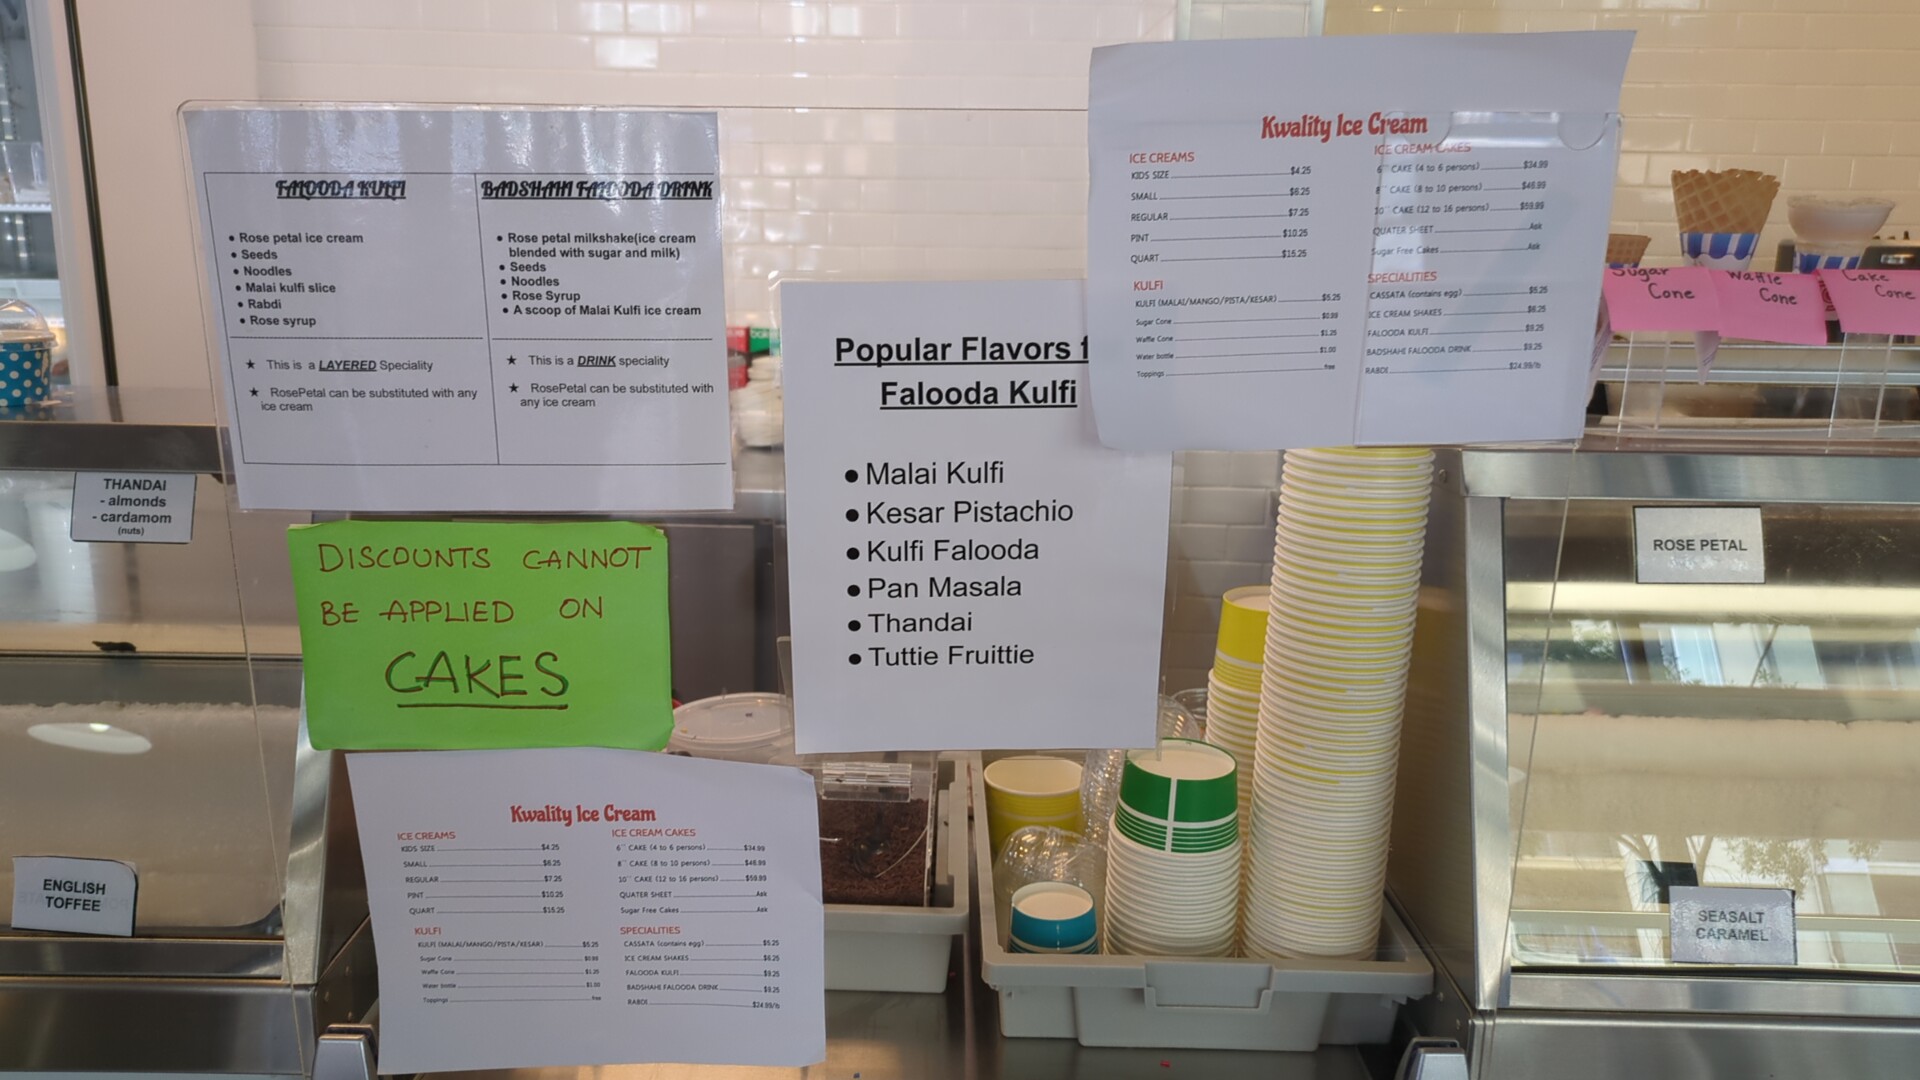 FALOODA KULFI
• Rose petal ice cream
• Seeds
• Noodles
• Malai kulfi slice
• Rabdi
• Rose syrup
★ This is a LAYERED Speciality
★ RosePetal can be substituted with any
ice cream
BADSHAHI FALOODA DRINK
• Rose petal milkshake(ice cream
blended with sugar and milk)
• Seeds
• Noodles
• Rose Syrup
• A scoop of Malai Kulfi ice cream
★ This is a DRINK speciality
★ RosePetal can be substituted with
any ice cream
Kwality Ice Cream
ICE CREAMS
KIDS SIZE $4.25
SMALL $6.25
REGULAR $7.25
PINT $10.25
QUART $15.25
KULFI
KULFI (MALAI/MANGO/PISTA/KESAR) $5.25
Sugar Cone $0.99
Waffle Cone $1.25
Water bottle $1.00
Toppings free
ICE CREAM CAKES
6" CAKE (4 to 6 persons) $34.99
8" CAKE (8 to 10 persons) $48.99
10" CAKE (12 to 16 persons) $59.99
QUATER SHEET Ask
Sugar Free Cakes Ask
SPECIALITIES
CASSATA (contains egg) $5.25
ICE CREAM SHAKES $6.25
FALOODA KULFI $9.25
BADSHAHI FALOODA DRINK $9.25
RABDI $24.99/lb
Sugar
Cone
Waffle
Cone
Cake
Cone
Popular Flavors f
Falooda Kulfi
• Malai Kulfi
• Kesar Pistachio
• Kulfi Falooda
• Pan Masala
• Thandai
• Tuttie Fruittie
THANDAI
- almonds
- cardamom
(nuts)
DISCOUNTS CANNOT
BE APPLIED ON
CAKES
ROSE PETAL
ENGLISH
TOFFEE
SEASALT
CARAMEL
Kwality Ice Cream
ICE CREAMS
KIDS SIZE $4.25
SMALL $6.25
REGULAR $7.25
PINT $10.25
QUART $15.25
KULFI
KULFI (MALAI/MANGO/PISTA/KESAR) $5.25
Sugar Cone $0.99
Waffle Cone $1.25
Water bottle $1.00
Toppings free
ICE CREAM CAKES
6" CAKE (4 to 6 persons) $34.99
8" CAKE (8 to 10 persons) $48.99
10" CAKE (12 to 16 persons) $59.99
QUATER SHEET Ask
Sugar Free Cakes Ask
SPECIALITIES
CASSATA (contains egg) $5.25
ICE CREAM SHAKES $6.25
FALOODA KULFI $9.25
BADSHAHI FALOODA DRINK $9.25
RABDI $24.99/lb